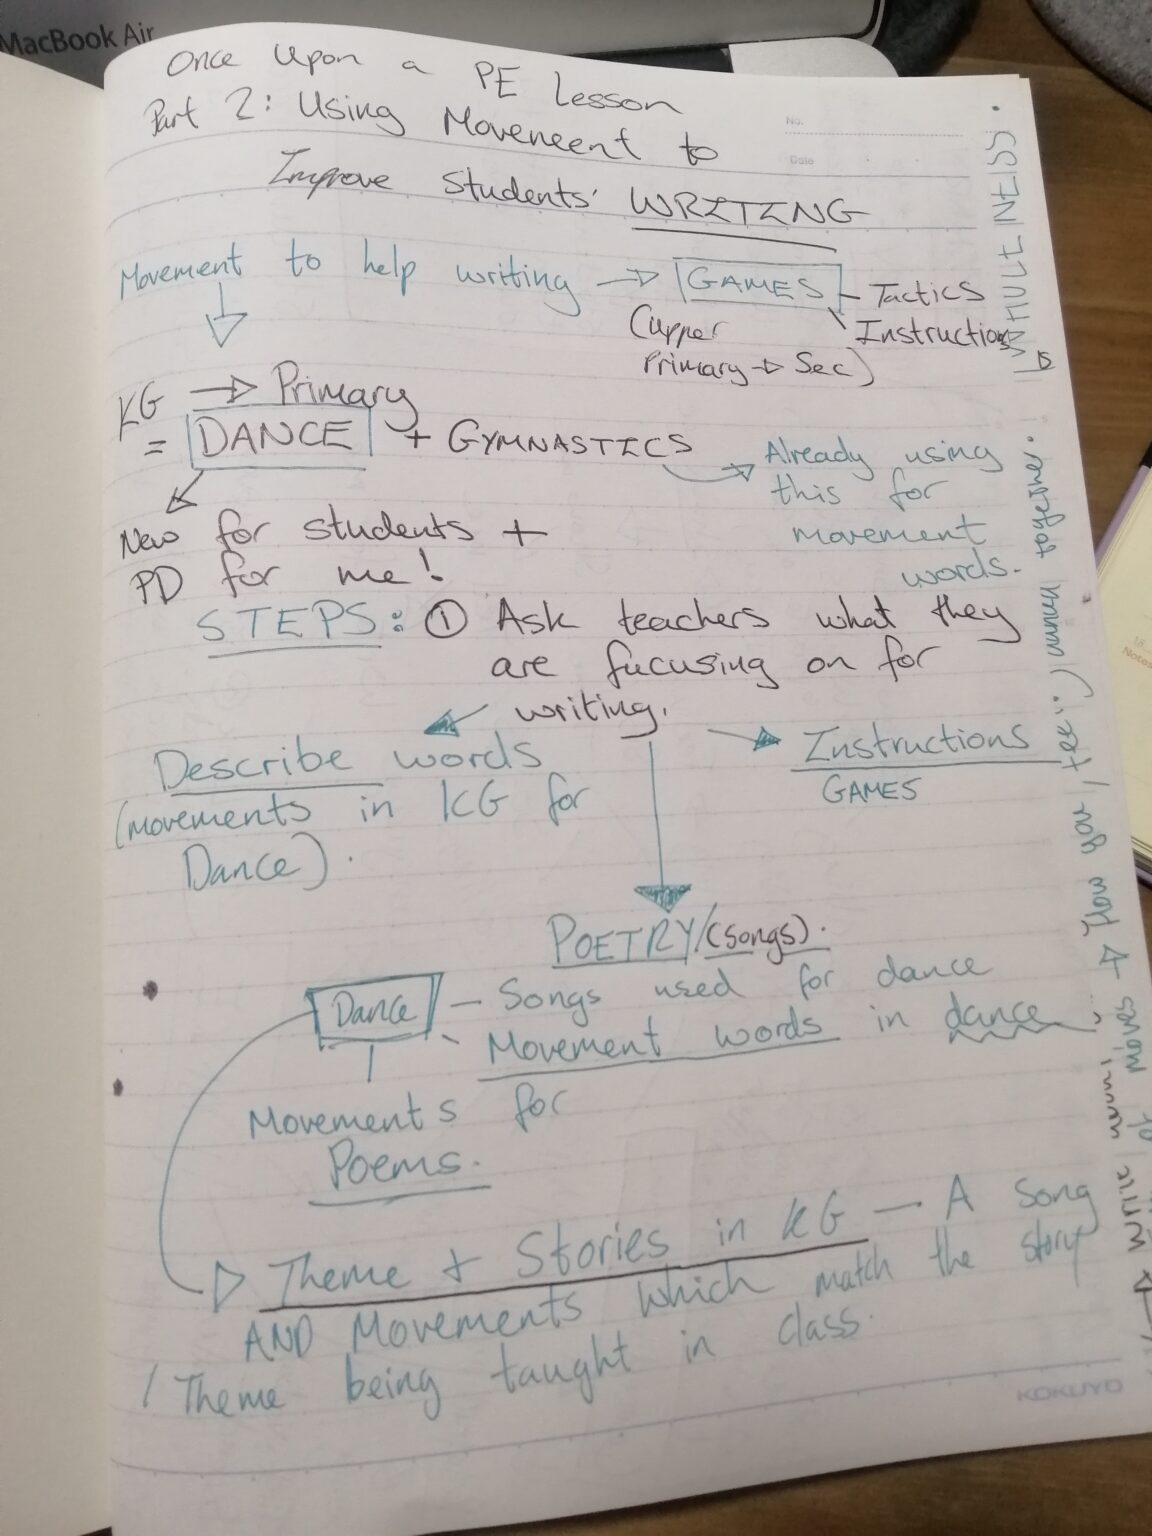 MacBook Air
Once Upon a PE Lesson
Part 2: Using Movement to
Improve Students' WRITING
No.
Date
Movement to help writing → GAMES - Tactics
Instructions
(upper
Primary → Sec)
KG → Primary
= DANCE + GYMNASTICS
Already using
this for
movement
words.
New for students +
PD for me!
STEPS: ① Ask teachers what they
are focusing on for
writing.
Describe words
(movements in KG for
Dance).
Instructions
GAMES
POETRY/(songs).
Dance - Songs used for dance
- Movement words in dance
Movements for
Poems.
Theme + Stories in KG - A song
AND Movements which match the story
/ Theme being taught in class.
KOKUYO
Notes
Write
or moves → How you
together!